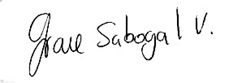 Grace Sabogal V.